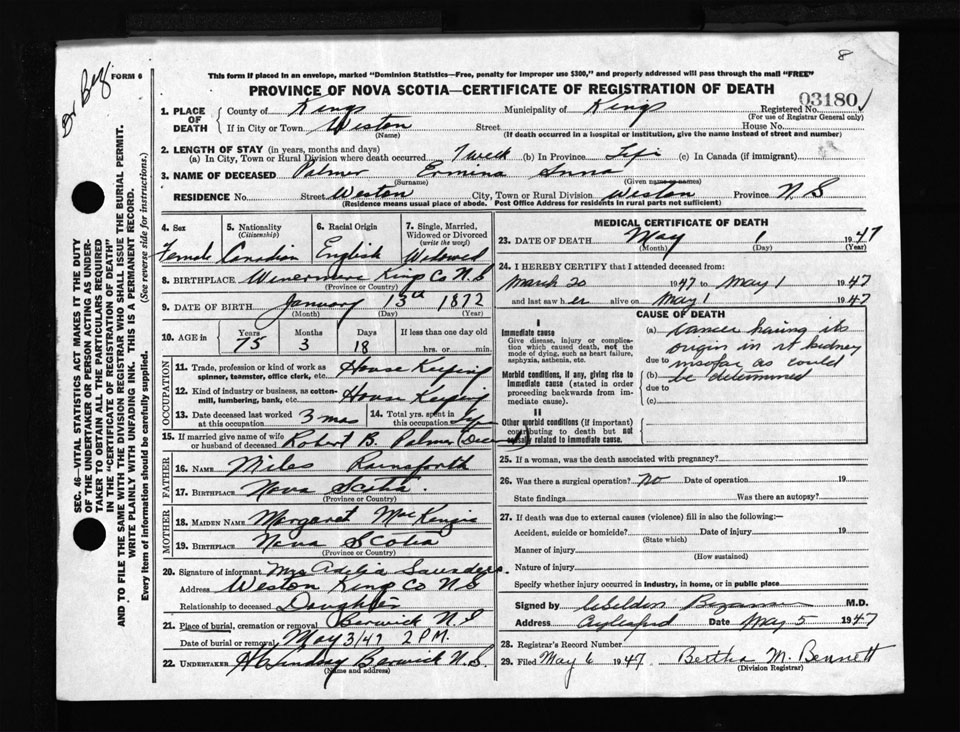 8
Br Bey.
FORM 6
This form if placed in an envelope, marked "Dominion Statistics—Free, penalty for improper use $300," and properly addressed will pass through the mail "FREE"
PROVINCE OF NOVA SCOTIA—CERTIFICATE OF REGISTRATION OF DEATH
03180
1. PLACE OF DEATH County of Kings Municipality of Kings Registered No.
(For use of Registrar General only)
If in City or Town Weston Street House No.
(Name) (If death occurred in a hospital or institution, give the name instead of street and number)
2. LENGTH OF STAY (in years, months and days)
(a) In City, Town or Rural Division where death occurred 1 week (b) In Province Life (c) In Canada (if immigrant)
3. NAME OF DECEASED Palmer Ermina Anna
(Surname) (Given name or names)
RESIDENCE No. Street Weston City, Town or Rural Division Weston Province N.S
(Residence means usual place of abode. Post Office Address for residents in rural parts not sufficient)
4. Sex 5. Nationality (Citizenship) 6. Racial Origin 7. Single, Married, Widowed or Divorced (write the word)
Female Canadian English Widowed
8. BIRTHPLACE King Co N.S
(Province or Country)
9. DATE OF BIRTH January 13th 1872
(Month) (Day) (Year)
10. AGE in Years Months Days If less than one day old
75 3 18 hrs. or min.
OCCUPATION
11. Trade, profession or kind of work as spinner, teamster, office clerk, etc. House Keeping
12. Kind of industry or business, as cotton-mill, lumbering, bank, etc. House Keeping
13. Date deceased last worked at this occupation 3 mos 14. Total yrs. spent in
15. If married give name of wife or husband of deceased Robert B. Palmer (Deceased)
FATHER
16. NAME Miles Rainsforth
17. BIRTHPLACE Nova Scotia.
(Province or Country)
MOTHER
18. MAIDEN NAME Margaret MacKenzie
19. BIRTHPLACE Nova Scotia
(Province or Country)
20. Signature of informant Mrs Adelia Saunders.
Address Weston King Co N S
Relationship to deceased Daughter
21. Place of burial, cremation or removal Berwick N S
Date of burial or removal May 3/47 2 P.M.
22. UNDERTAKER Lindsay Berwick N.S.
(Name and address)
MEDICAL CERTIFICATE OF DEATH
23. DATE OF DEATH May 1 1947
(Month) (Day) (Year)
24. I HEREBY CERTIFY that I attended deceased from:
March 20 1947 to May 1 1947
and last saw her alive on May 1 1947
CAUSE OF DEATH
I
Immediate cause
Give disease, injury or complication which caused death, not the mode of dying, such as heart failure, asphyxia, asthenia, etc.
Morbid conditions, if any, giving rise to immediate cause (stated in order proceeding backwards from immediate cause)
II
Other morbid conditions (if important) contributing to death but not causally related to immediate cause.
(a) Cancer having its
origin in rt kidney
due to insofar as could
(b) be determined
due to
(c)
25. If a woman, was the death associated with pregnancy?
26. Was there a surgical operation? no Date of operation 19
State findings Was there an autopsy?
27. If death was due to external causes (violence) fill in also the following:—
Accident, suicide or homicide? Date of injury 19
(State which)
Manner of injury
(How sustained)
Nature of injury
Specify whether injury occurred in Industry, in home, or in public place
Signed by M.D.
Address Aylesford Date May 5 1947
28. Registrar's Record Number
29. Filed May 6 1947 Bertha M. Bennett
(Division Registrar)
SEC. 46—VITAL STATISTICS ACT MAKES IT THE DUTY
OF THE UNDERTAKER OR PERSON ACTING AS UNDER-
TAKER TO OBTAIN ALL THE PARTICULARS REQUIRED
IN THE "CERTIFICATE OF REGISTRATION OF DEATH"
AND TO FILE THE SAME WITH THE DIVISION REGISTRAR WHO SHALL ISSUE THE BURIAL PERMIT.
WRITE PLAINLY WITH UNFADING INK. THIS IS A PERMANENT RECORD.
Every item of information should be carefully supplied. (See reverse side for instructions.)